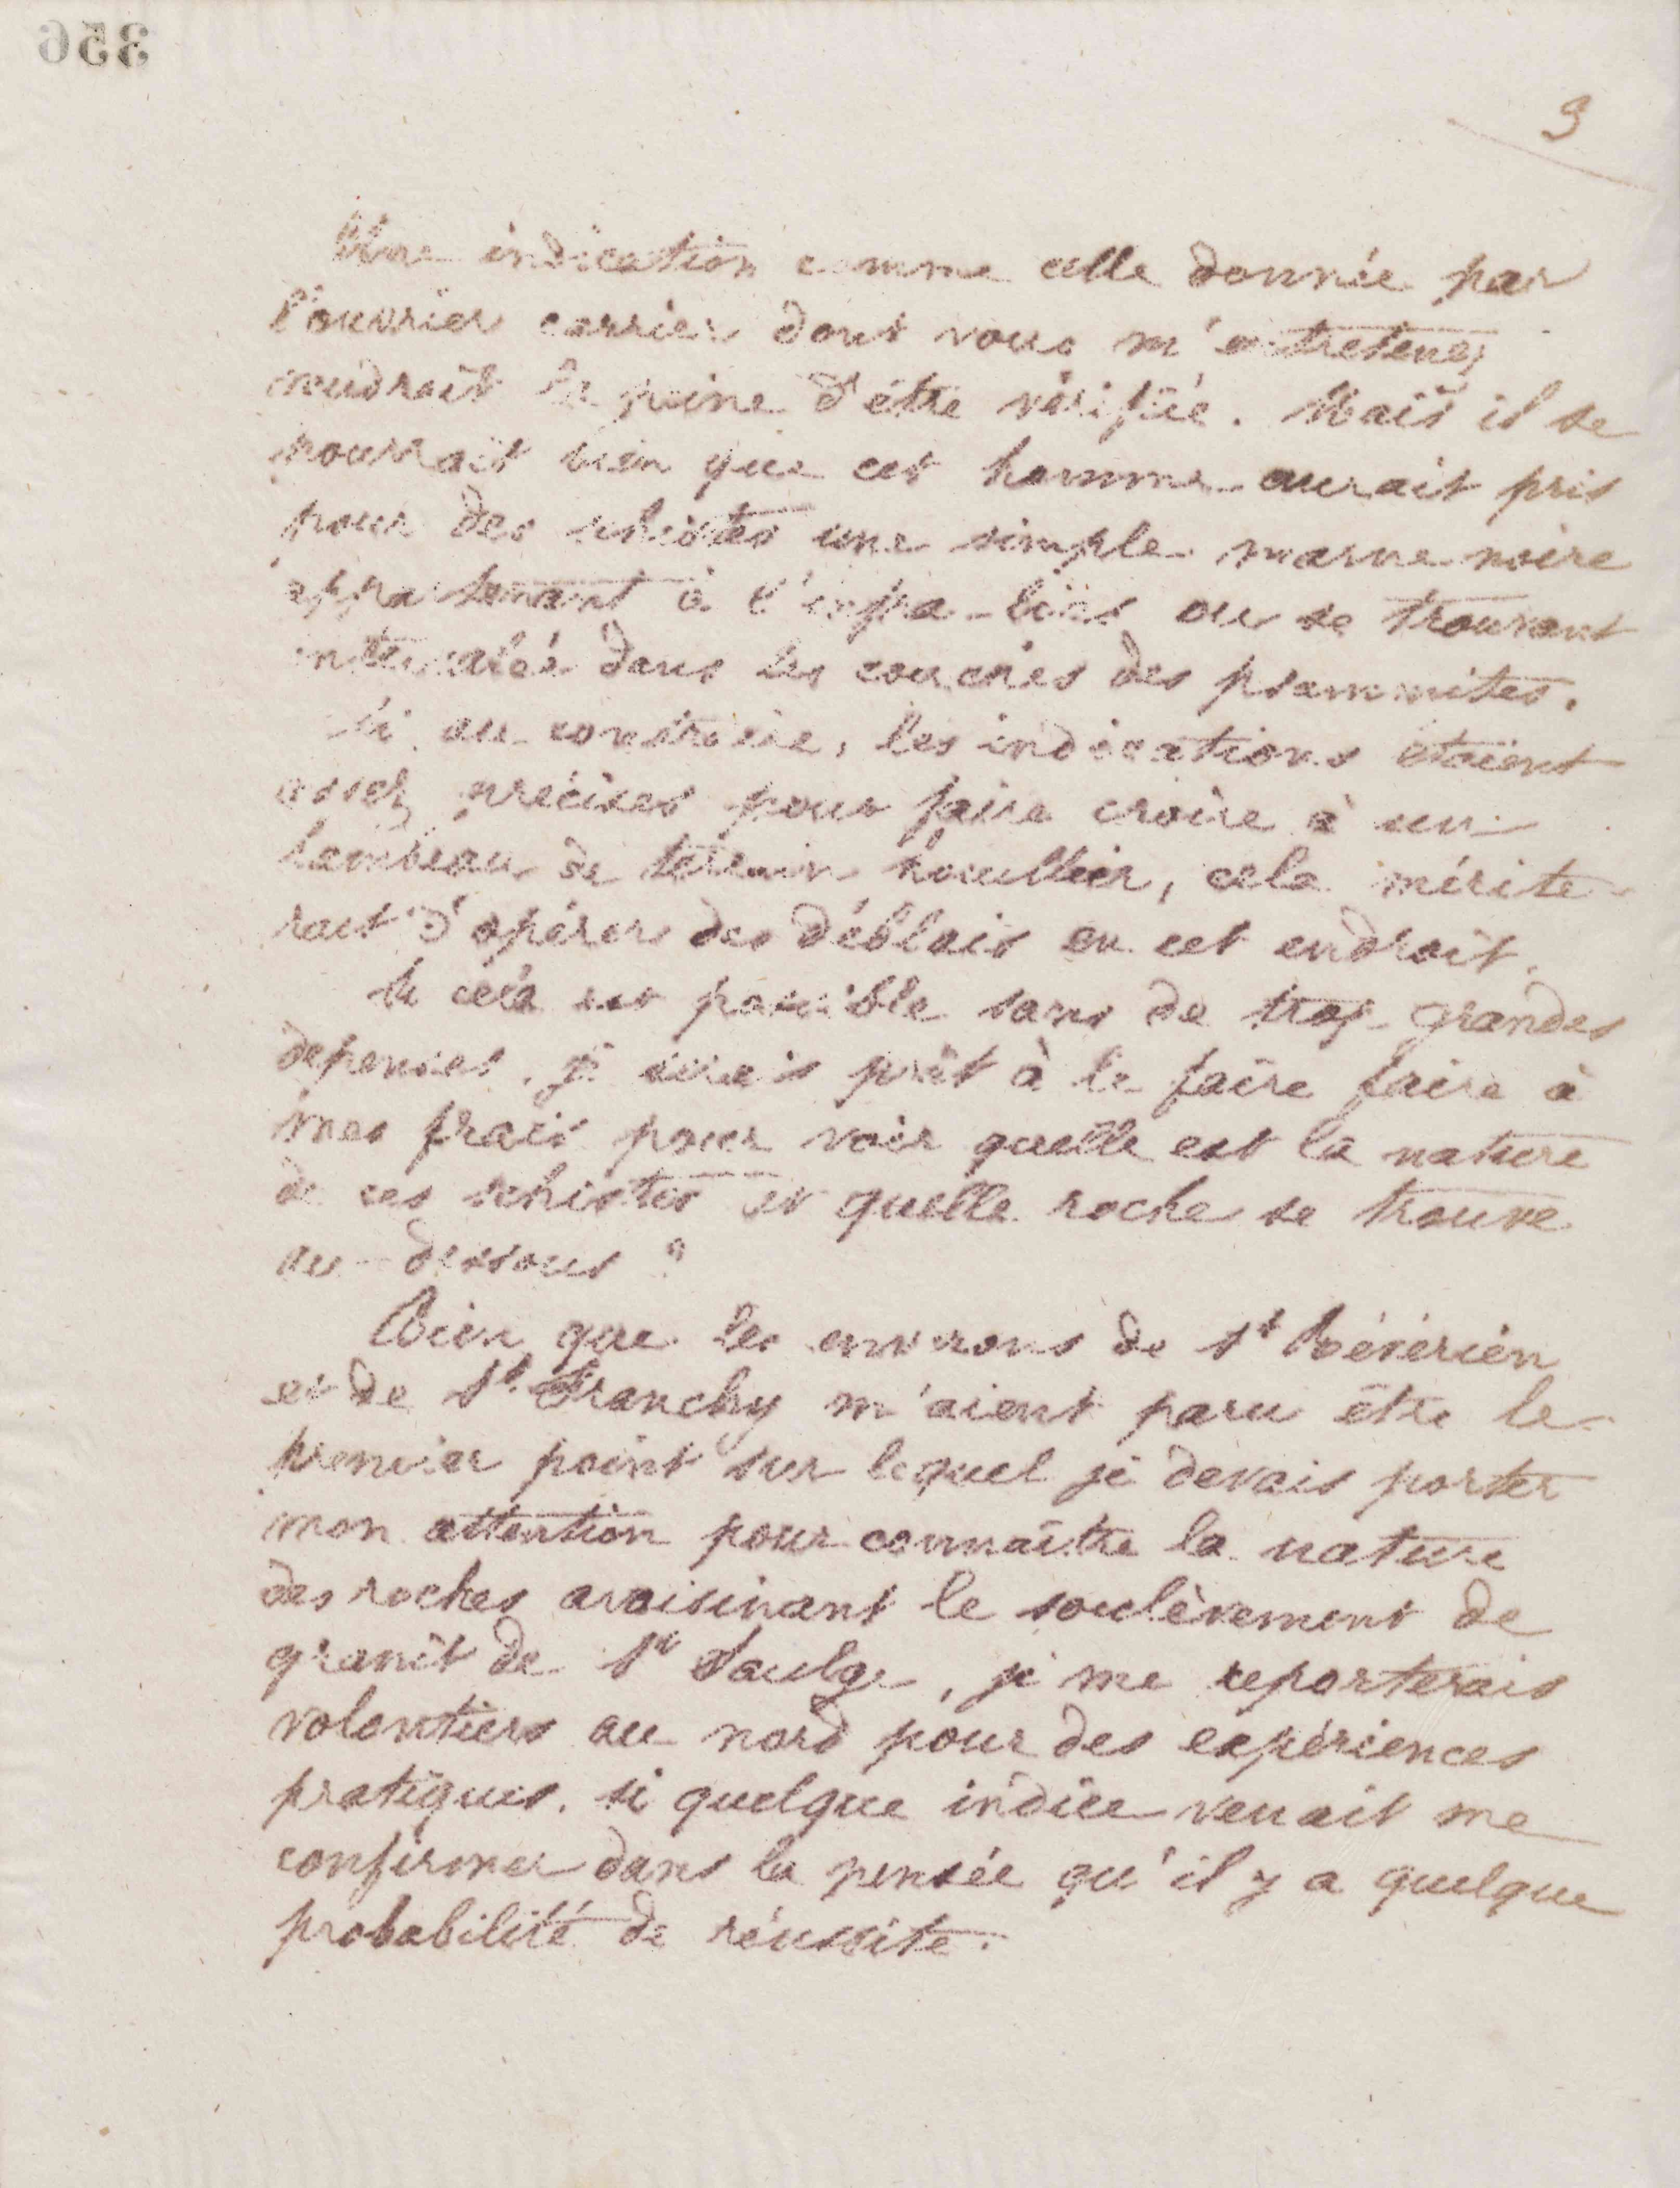 356
3
Une indication comme celle donnée par
l'ouvrier carrier dont vous m'entretenez
vaudrait la peine d'être vérifiée. Mais il se
pourrait bien que cet homme aurait pris
pour des schistes une simple marne noire
appartenant à l'infra-lias ou se trouvant
intercalée dans les couches des psammites.
Si au contraire, les indications étaient
assez précises pour faire croire à un
lambeau de terrain houiller, cela mérite
rait d'opérer des déblais en cet endroit.
Si cela est possible sans de trop grandes
depenses, je serais prêt à le faire faire à
mes frais pour voir quelle est la nature
de ces schistes et quelle roche se trouve
au-dessous ?
Bien que les environs de St Révérien
et de St. Franchy m'aient paru être le
premier point sur lequel je devais porter
mon attention pour connaître la nature
des roches avoisinant le soulèvement de
granit de St Saulge, je me reporterais
volontiers au nord pour des expériences
pratiques, si quelque indice venait me
confirmer dans la pensée qu'il y a quelque
probabilité de réussite.